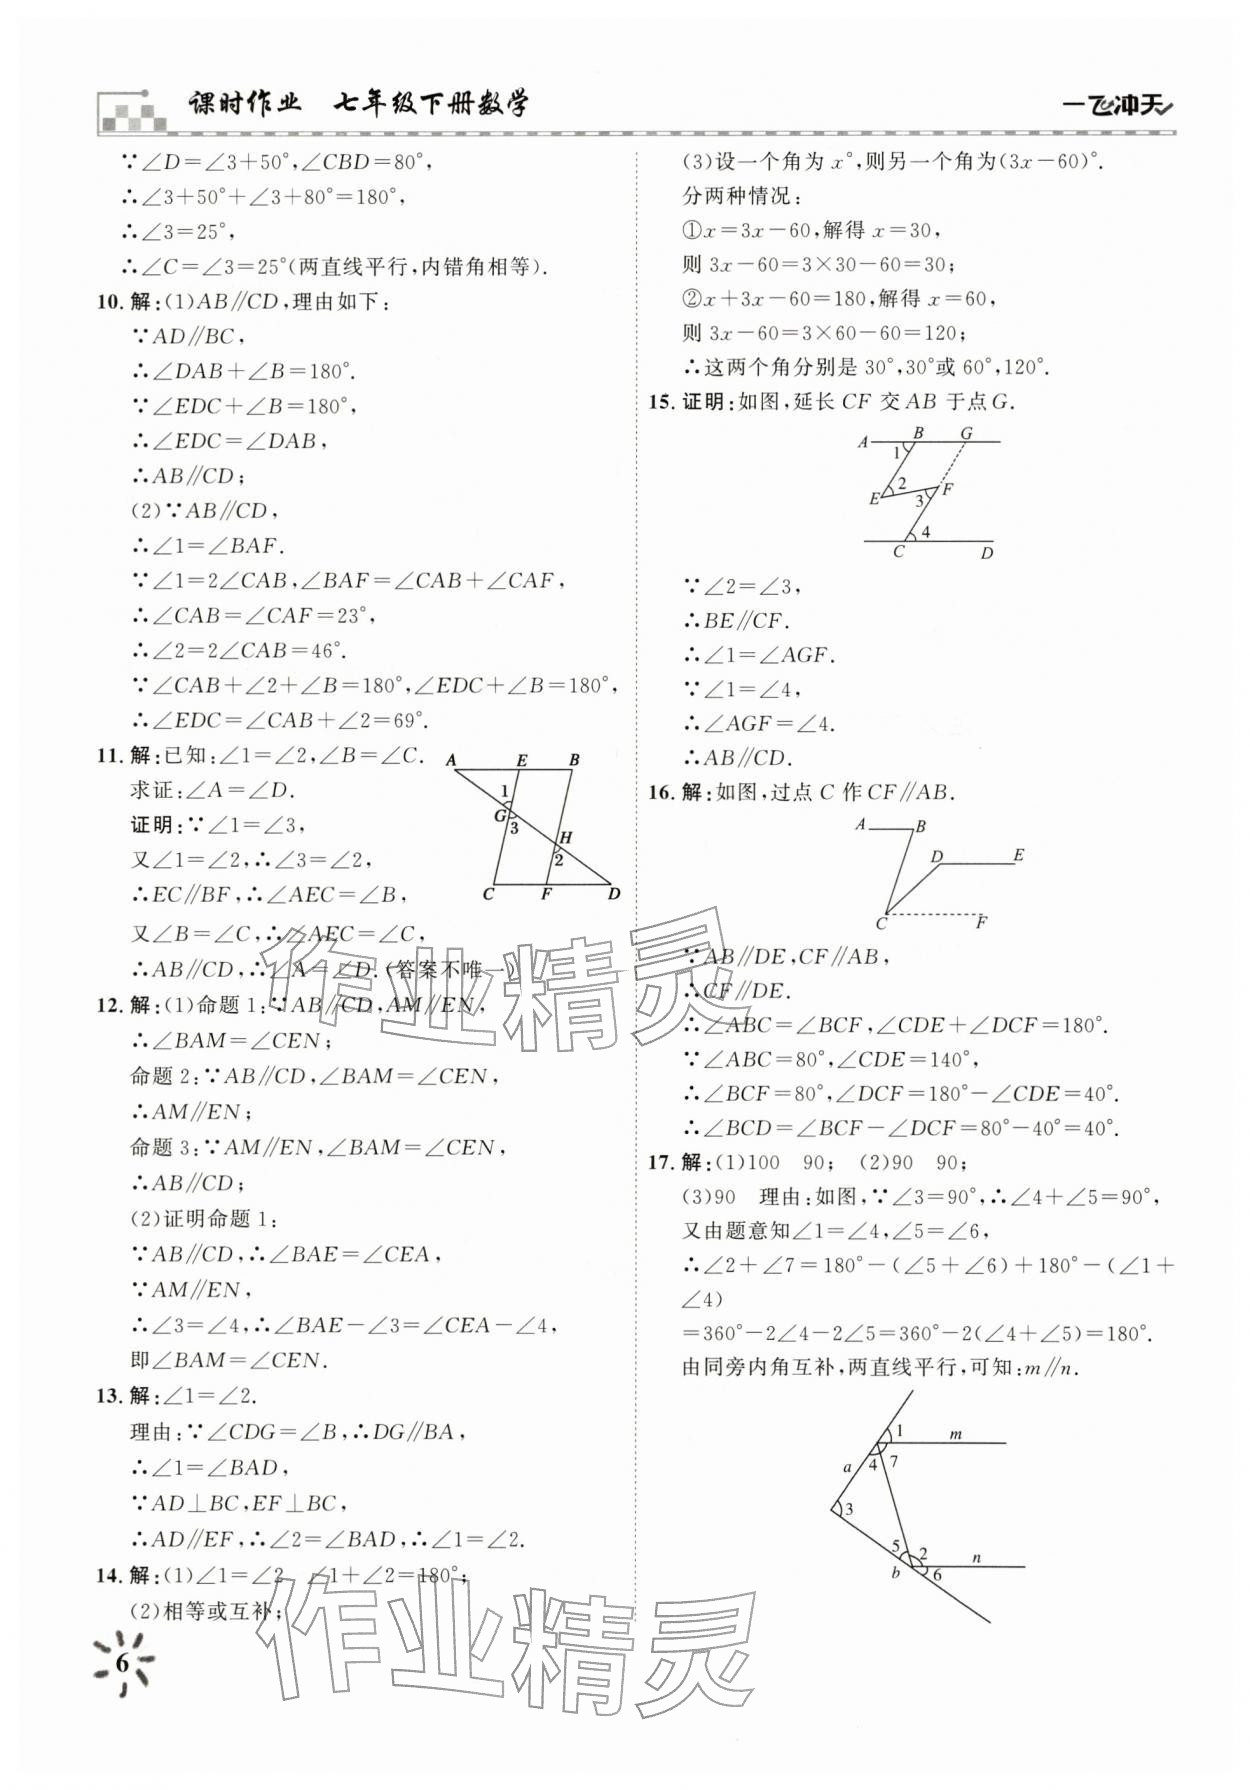 课时作业 七年级下册数学
一飞冲天
∵∠D=∠3+50°,∠CBD=80°,
∴∠3+50°+∠3+80°=180°,
∴∠3=25°,
∴∠C=∠3=25°(两直线平行,内错角相等).
10. 解:(1)AB∥CD,理由如下:
∵AD∥BC,
∴∠DAB+∠B=180°.
∵∠EDC+∠B=180°,
∴∠EDC=∠DAB,
∴AB∥CD;
(2)∵AB∥CD,
∴∠1=∠BAF.
∵∠1=2∠CAB,∠BAF=∠CAB+∠CAF,
∴∠CAB=∠CAF=23°,
∴∠2=2∠CAB=46°.
∵∠CAB+∠2+∠B=180°,∠EDC+∠B=180°,
∴∠EDC=∠CAB+∠2=69°.
11. 解:已知:∠1=∠2,∠B=∠C.
求证:∠A=∠D.
证明:∵∠1=∠3,
又∠1=∠2,∴∠3=∠2,
∴EC∥BF,∴∠AEC=∠B,
又∠B=∠C,∴∠AEC=∠C,
∴AB∥CD,∴∠A=∠D.(答案不唯一)
A E B
1
G 3
H
2
C F D
12. 解:(1)命题1:∵AB∥CD,AM∥EN,
∴∠BAM=∠CEN;
命题2:∵AB∥CD,∠BAM=∠CEN,
∴AM∥EN;
命题3:∵AM∥EN,∠BAM=∠CEN,
∴AB∥CD;
(2)证明命题1:
∵AB∥CD,∴∠BAE=∠CEA,
∵AM∥EN,
∴∠3=∠4,∴∠BAE-∠3=∠CEA-∠4,
即∠BAM=∠CEN.
13. 解:∠1=∠2.
理由:∵∠CDG=∠B,∴DG∥BA,
∴∠1=∠BAD,
∵AD⊥BC,EF⊥BC,
∴AD∥EF,∴∠2=∠BAD,∴∠1=∠2.
14. 解:(1)∠1=∠2 ∠1+∠2=180°;
(2)相等或互补;
6
(3)设一个角为x°,则另一个角为(3x-60)°.
分两种情况:
①x=3x-60,解得x=30,
则3x-60=3×30-60=30;
②x+3x-60=180,解得x=60,
则3x-60=3×60-60=120;
∴这两个角分别是30°,30°或60°,120°.
15. 证明:如图,延长CF交AB于点G.
A B G
1
2
E F
3
4
C D
∵∠2=∠3,
∴BE∥CF.
∴∠1=∠AGF.
∵∠1=∠4,
∴∠AGF=∠4.
∴AB∥CD.
16. 解:如图,过点C作CF∥AB.
A B
D E
C F
∵AB∥DE,CF∥AB,
∴CF∥DE.
∴∠ABC=∠BCF,∠CDE+∠DCF=180°.
∵∠ABC=80°,∠CDE=140°,
∴∠BCF=80°,∠DCF=180°-∠CDE=40°.
∴∠BCD=∠BCF-∠DCF=80°-40°=40°.
17. 解:(1)100 90; (2)90 90;
(3)90 理由:如图,∵∠3=90°,∴∠4+∠5=90°,
又由题意知∠1=∠4,∠5=∠6,
∴∠2+∠7=180°-(∠5+∠6)+180°-(∠1+
∠4)
=360°-2∠4-2∠5=360°-2(∠4+∠5)=180°.
由同旁内角互补,两直线平行,可知:m∥n.
1 m
a 4 7
3
5 2 n
b 6
作业精灵
作业精灵